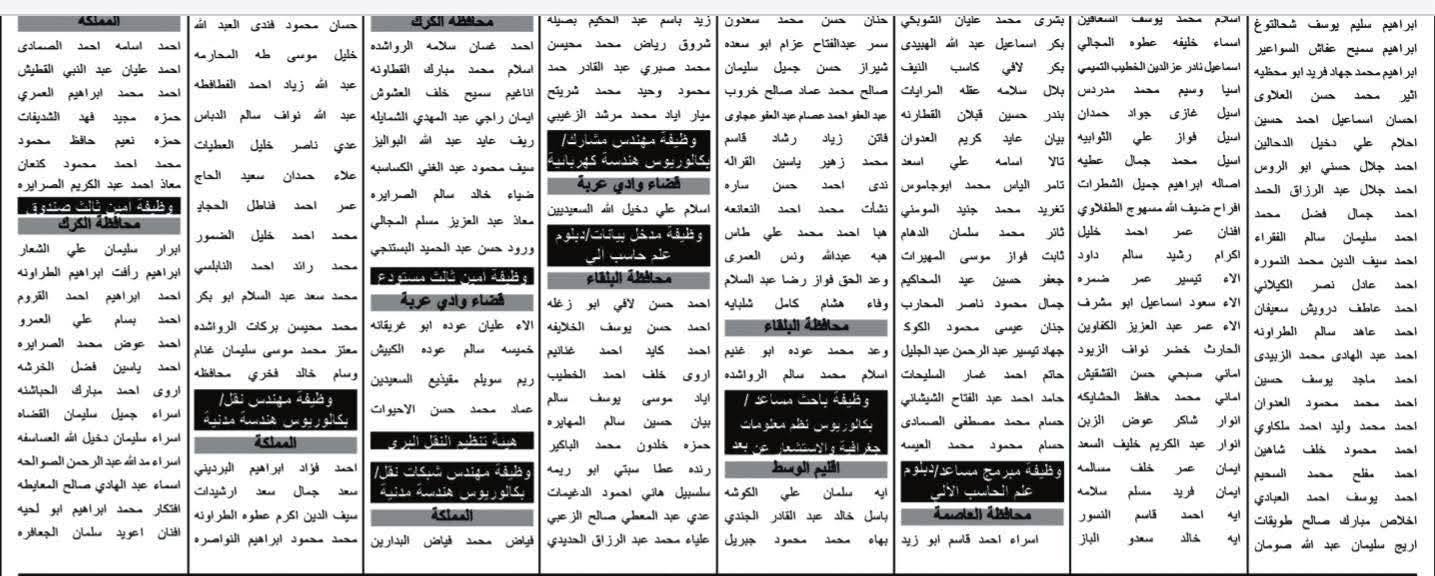 ابراهيم سليم يوسف شحالتوغ
ابراهيم سميح عفاش السواعير
ابراهيم محمد جهاد فريد ابو محظيه
اثير محمد حسن العلاوى
احسان اسماعيل احمد حسين
احلام علي دخيل الدحالين
احمد جلال حسني ابو الروس
احمد جلال عبد الرزاق الحمد
احمد جمال فضل محمد
احمد سليمان سالم الفقراء
احمد سيف الدين محمد النموره
احمد عادل نصر الكيلاني
احمد عاطف درويش سعيفان
احمد عاهد سالم الطراونه
احمد عبد الهادى محمد الزبيدى
احمد ماجد يوسف حسين
احمد محمد محمود العدوان
احمد محمد وليد احمد ملكاوي
احمد محمود خلف شاهين
احمد مفلح محمد السحيم
احمد يوسف احمد العبادي
اخلاص مبارك صالح طويقات
اريج سليمان عبد الله صومان
اسلام محمد يوسف السعافين
اسماء خليفه عطوه المجالي
اسماعيل نادر عز الدين الخطيب التميمي
اسيا وسيم محمد مدردس
اسيل غازى جواد حمدان
اسيل فواز علي الثوابيه
اسيل محمد جمال عطيه
اصاله ابراهيم جميل الشطرات
افراح ضيف الله مسهوج الطفلاوي
افنان عمر احمد خليل
اكرام رشيد سالم داود
الاء تيسير عمر ضمره
الاء سعود اسماعيل ابو مشرف
الاء عمر عبد العزيز الكفاوين
الحارث خضر نواف الزيود
اماني صبحي حسن القشقيش
اماني محمد حافظ الحشايكه
انوار شاكر عوض الزبن
انوار عبد الكريم خليف السعد
ايمان عمر خلف مسالمه
ايمان فريد مسلم سلامه
ايه احمد قاسم النسور
ايه خالد سعدو الباز
بشرى محمد عليان الشوبكي
بكر اسماعيل عبد الله الهبيدى
بكر لافي كاسب النيف
بلال سلامه عقله المرايات
بندر حسين قبلان القطارنه
بيان عايد كريم العدوان
تالا اسامه علي اسعد
تامر الياس محمد ابوجاموس
تغريد محمد جنيد المومني
ثائر محمد سلمان الدهام
ثابت فواز موسى المهيرات
جعفر حسين عيد المحاكيم
جمال محمود ناصر المحارب
جنان عيسى محمود الكوك
جهاد تيسير عبد الرحمن عبد الجليل
حاتم احمد غمار السليحات
حامد احمد عبد الفتاح الشيشاني
حسام محمد مصطفى الصمادى
حسام محمود محمد العيسه
وظيفة مبرمج مساعد/دبلوم
علم الحاسب الآلي
محافظة العاصمة
اسراء احمد قاسم ابو زيد
حنان حسن محمد سعدون
سمر عبدالفتاح عزام ابو سعده
شيراز حسن جميل سليمان
صالح محمد عماد صالح خروب
عبد العفو احمد عصام عبد العفو عجاوى
فاتن زياد رشاد قاسم
محمد زهير ياسين القراله
ندى احمد حسن ساره
نشأت محمد احمد النعانعه
هبا احمد محمد علي طاس
هبه عبدالله ونس العمرى
وعد الحق فواز رضا عبد السلام
وفاء هشام كامل شلبايه
محافظة البلقاء
وعد محمد عوده ابو غنيم
اسلام محمد سالم الرواشده
وظيفة باحث مساعد /
بكالوريوس نظم معلومات
جغرافية والاستشعار عن بعد
اقليم الوسط
ايه سلمان علي الكوشه
باسل خالد عبد القادر الجندي
بهاء محمد محمود جبريل
زيد باسم عبد الحكيم بصيله
شروق رياض محمد محيسن
محمد صبري عبد القادر حمد
محمود وحيد محمد شريتح
ميار اياد محمد مرشد الزغيبي
وظيفة مهندس مشارك/
بكالوريوس هندسة كهربائية
قضاء وادي عربة
اسلام علي دخيل الله السعيديين
وظيفة مدخل بيانات/دبلوم
علم حاسب الي
محافظة البلقاء
احمد حسن لافي ابو زغله
احمد حسن يوسف الخلايفه
احمد كايد احمد غنانيم
اروى خلف احمد الخطيب
اياد موسى يوسف سالم
بيان حسين سالم المهايره
حمزه خلدون محمد الباكير
رنده عطا سبتي ابو ريمه
سلسبيل هاني احمود الدغيمات
عدي عبد المعطي صالح الزعبي
علياء محمد عبد الرزاق الحديدي
محافظة الكرك
احمد غسان سلامه الرواشده
اسلام محمد مبارك القطاونه
اناغيم سميح خلف العشوش
ايمان راجي عبد المهدي الشمايله
ريف عايد عبد الله البواليز
سيف محمود عبد الغني الكساسبه
ضياء خالد سالم الصرايره
معاذ عبد العزيز مسلم المجالي
ورود حسن عبد الحميد البستنجي
وظيفة أمين ثالث مستودع
قضاء وادي عربة
الاء عليان عوده ابو غريقانه
خميسه سالم عوده الكبيش
ريم سويلم مقيذيع السعيدين
عماد محمد حسن الاحيوات
هيئة تنظيم النقل البري
وظيفة مهندس شبكات نقل/
بكالوريوس هندسة مدنية
المملكة
فياض محمد فياض البدارين
حسان محمود فندى العبد الله
خليل موسى طه المحارمه
عبد الله زياد احمد القطاقطه
عبد الله نواف سالم الدباس
عدي ناصر خليل العطيات
علاء حمدان سعيد الحاج
عمر احمد فناطل الحجايا
محمد احمد خليل الضمور
محمد رائد احمد النابلسي
محمد سعد عبد السلام ابو بكر
محمد محيسن بركات الرواشده
معتز محمد موسى سليمان غنام
وسام خالد فخري محافظه
وظيفة مهندس نقل/
بكالوريوس هندسة مدنية
المملكة
احمد فؤاد ابراهيم البرديني
سعد جمال سعد ارشيدات
سيف الدين اكرم عطوه الطراونه
محمد محمود ابراهيم النواصره
المملكة
احمد اسامه احمد الصمادى
احمد عليان عبد النبي القطيش
احمد محمد ابراهيم العمري
حمزه مجيد فهد الشديفات
حمزه نعيم حافظ محمود
محمد احمد محمود كنعان
معاذ احمد عبد الكريم الصرايره
وظيفة امين ثالث صندوق
محافظة الكرك
ابرار سليمان علي الشعار
ابراهيم رأفت ابراهيم الطراونه
احمد ابراهيم احمد القروم
احمد بسام علي العمرو
احمد عوض محمد الصرايره
احمد ياسين فضل الخرشه
اروى احمد مبارك الحباشنه
اسراء جميل سليمان القضاه
اسراء سليمان دخيل الله العساسفه
اسراء عبد الرحمن الصوالحه
اسماء عبد الهادي صالح المعايطه
افتكار محمد ابراهيم ابو لحيه
افنان اعويد سلمان الجعافره